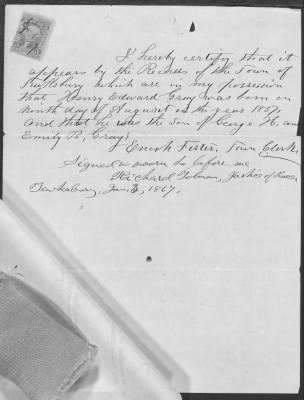 I hereby certify that it
appears by the Records of the Town of
which are in my possession
that Henry Edward Gray was born on
ninth day of August in the year 1857
and that he was the son of George H. and
Emily R. Gray
Enoch Foster, Town Clerk,
Signed & sworn to before me
Richard Tolman, Justice of Peace
Tewksbury, Jan. 3, 1867.